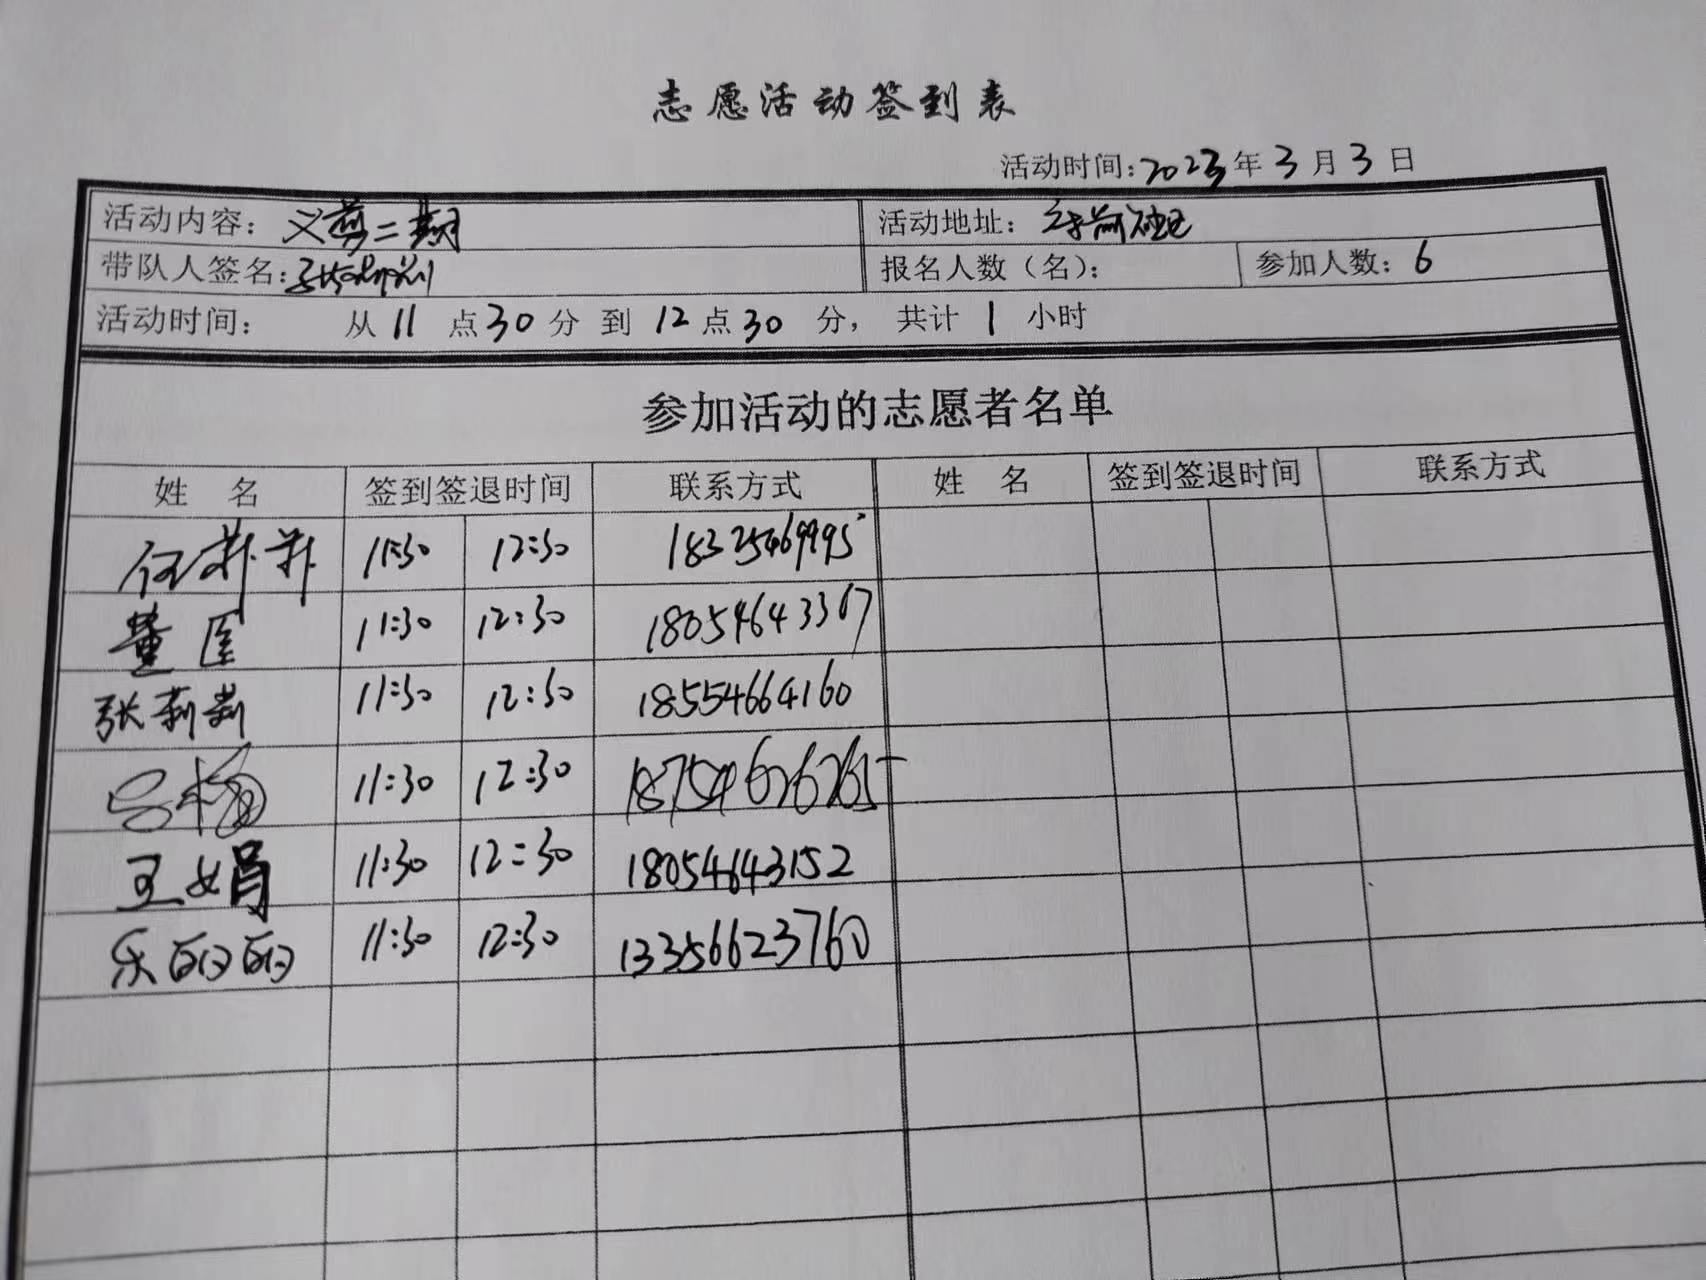 志愿活动签到表
活动时间:2023年3月3日
活动内容: 义剪二期 活动地址:
带队人签名: 报名人数(名): 参加人数: 6
活动时间: 从11点30分到12点30分, 共计1小时
参加活动的志愿者名单
姓名 签到签退时间 联系方式 姓名 签到签退时间 联系方式
11:30 12:30 18325469995
董 11:30 12:30 18054643367
张莉莉 11:30 12:30 18554664160
吕梅 11:30 12:30 18754676765
王娟 11:30 12:30 18054643152
乐丽丽 11:30 12:30 13356623760